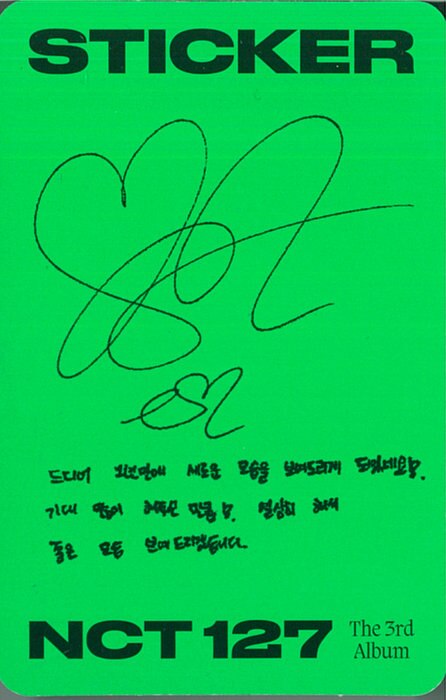 STICKER
드디어 오랜만에 새로운 모습을 보여드리게 되었네요!.
기대 많이 해주신 만큼!, 열심히 해서
좋은 모습 보여드리겠습니다.
NCT 127 The 3rd
Album